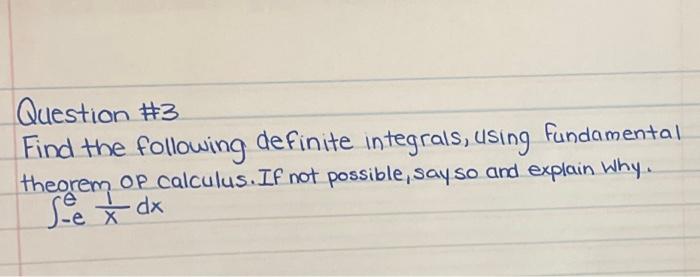 Question #3
Find the following definite integrals, using fundamental
theorem of calculus. If not possible, say so and explain why.
∫_{-e}^{e} 1/x dx